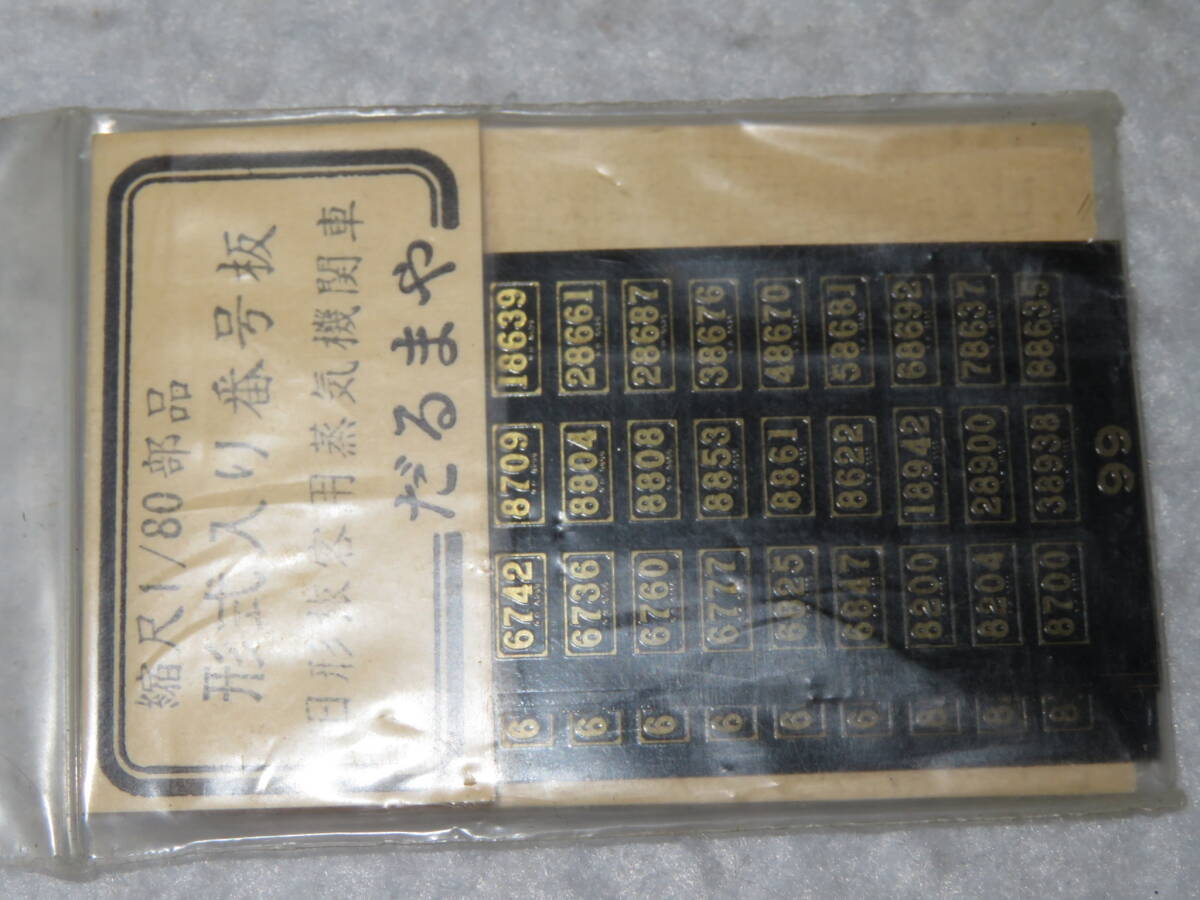 縮尺1/80部品
形式入り番号板
旧形技客用蒸気機関車
だるまや
18639
28661
28687
38676
48670
58681
68692
78637
8863
8709
8804
8808
8853
8861
8622
18942
28900
38938
6742
6736
6760
6777
6825
6847
8200
8204
8700
6
6
6
6
6
6
8
8
8
99